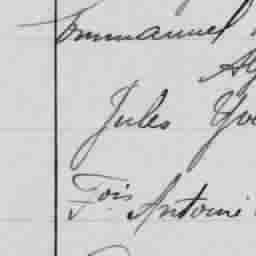 Emmanuel
Jules
Fois Antoine